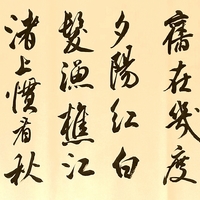 舊在幾度
夕陽紅白
髮漁樵江
渚上慣看秋